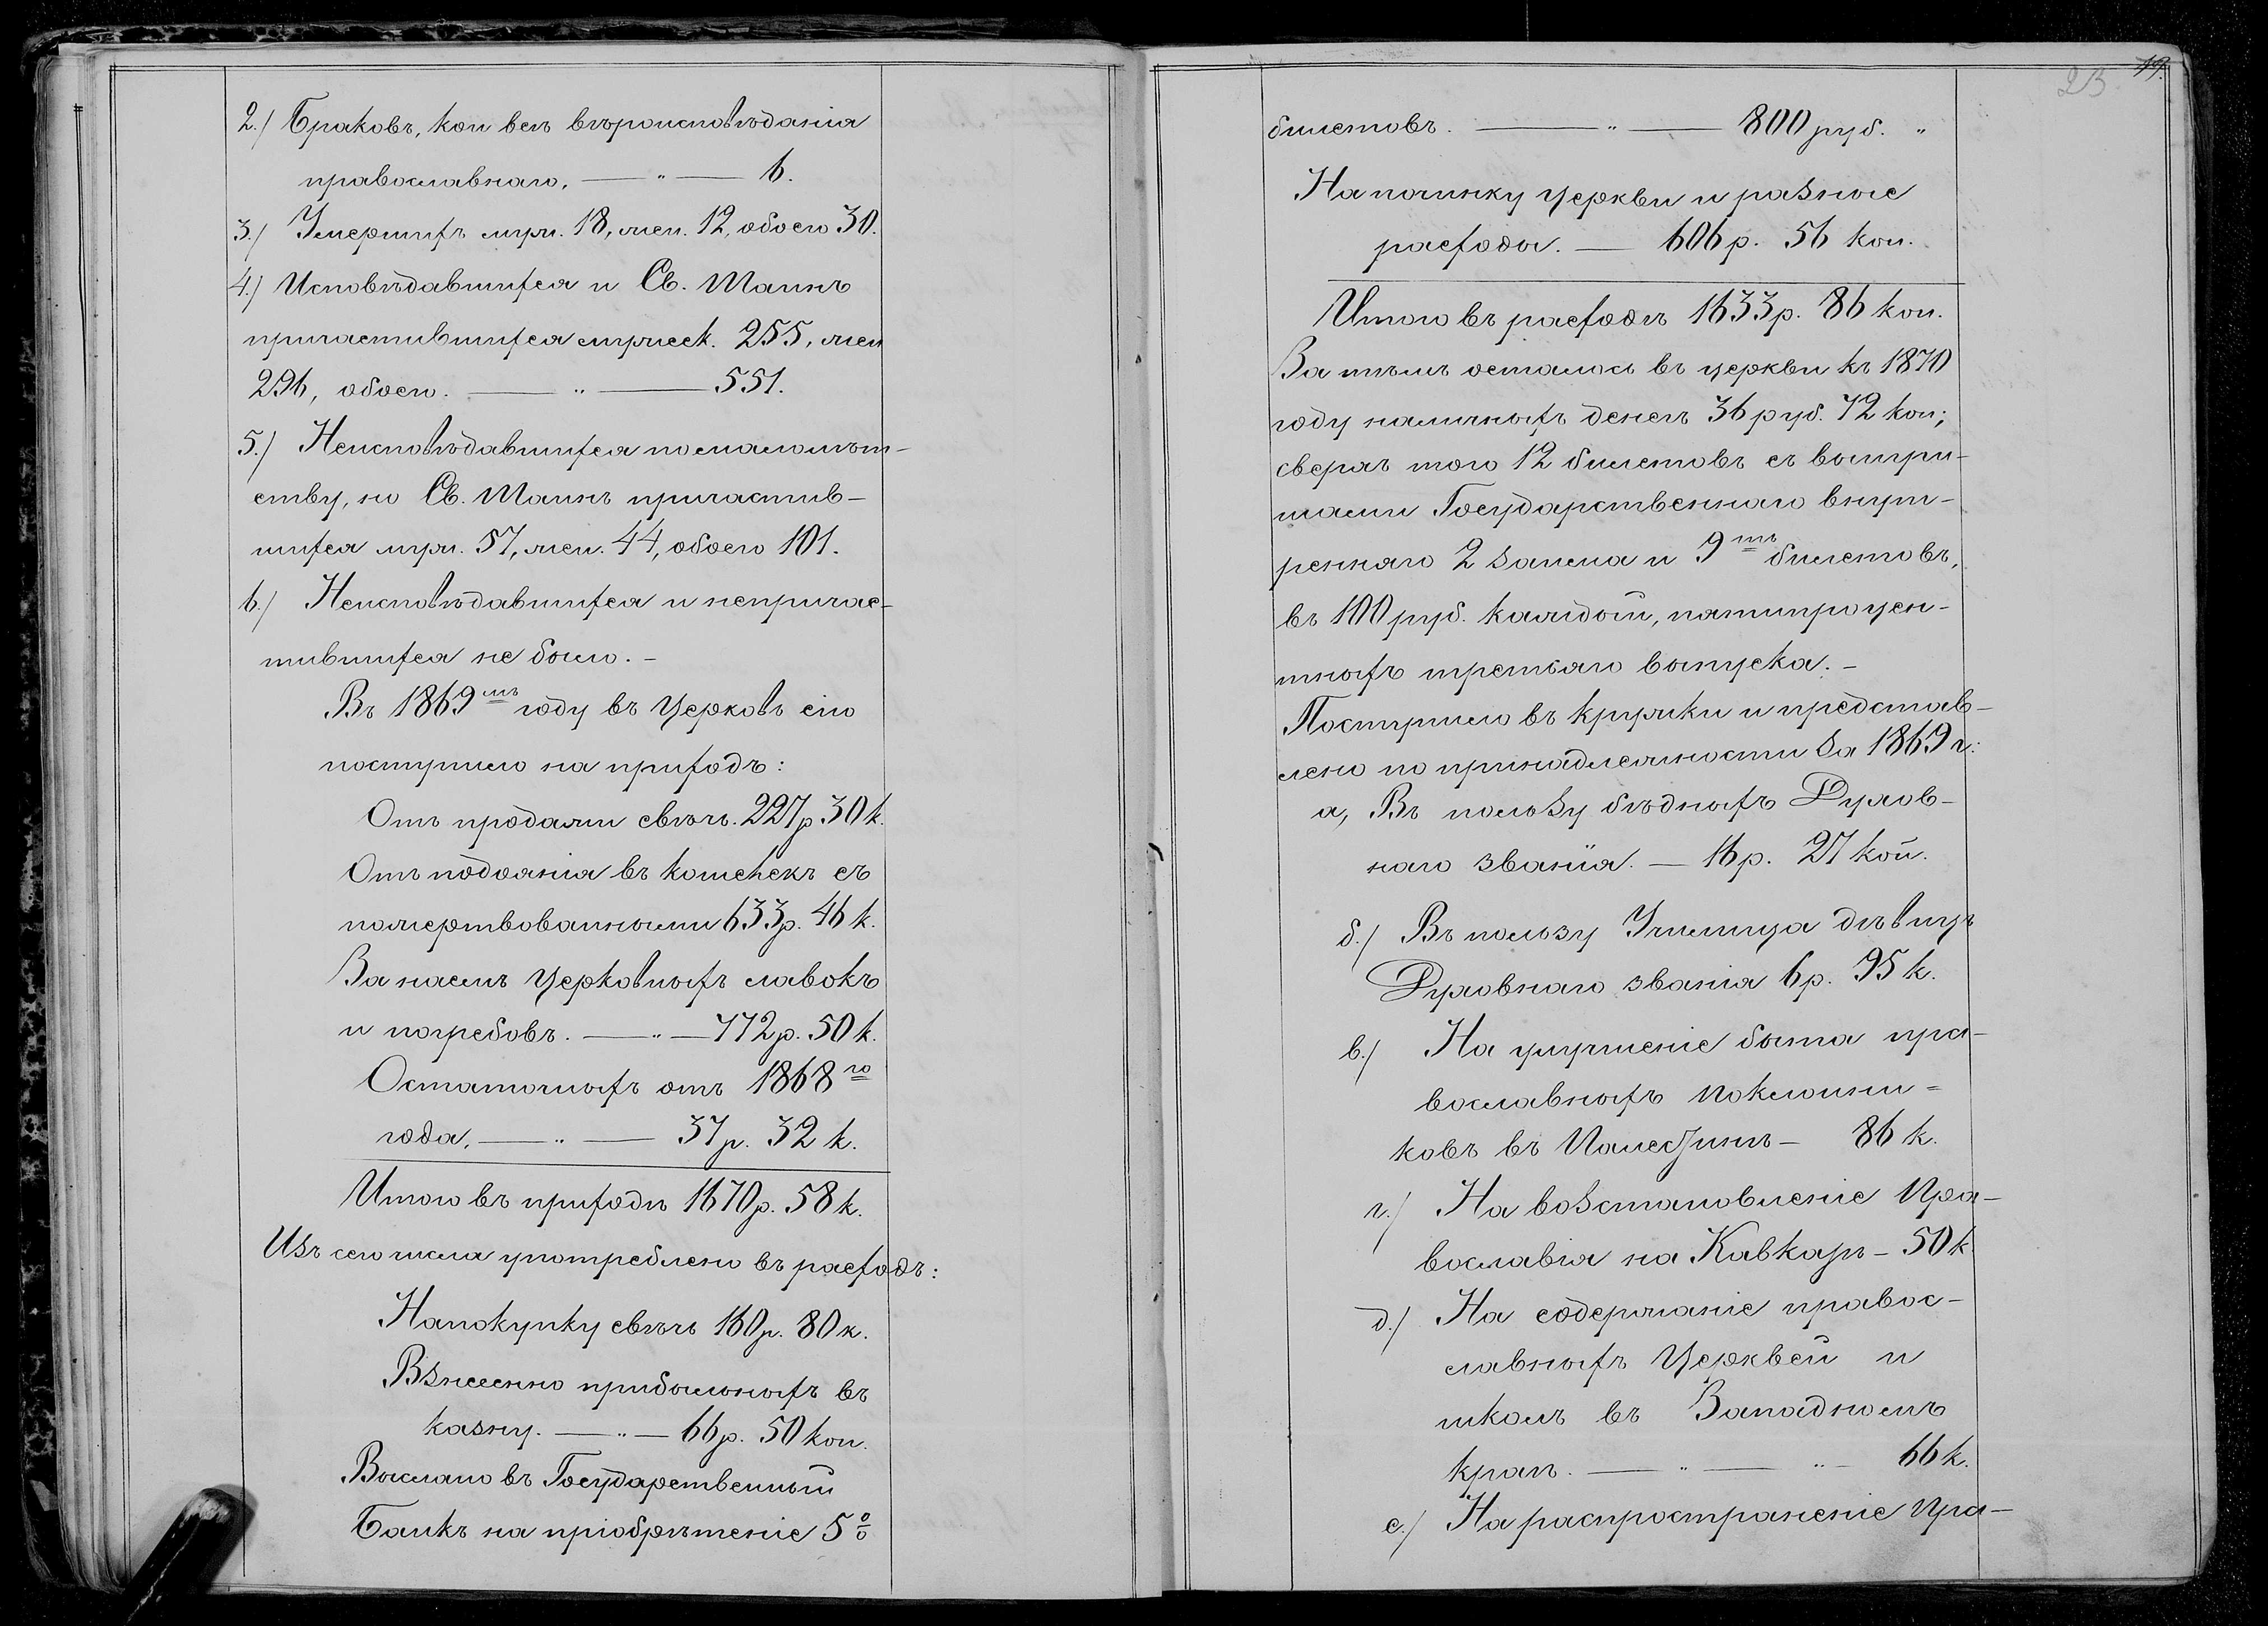 2.) Браковъ, кои всѣ вѣроисповѣданія
православнаго, — „ — 6.
3.) Умершихъ муж. 18, жен. 12, обоего 30.
4.) Исповѣдавшихся и Св. Таинъ
причастившихся мужеск. 255, жен
296, обоего. — „ — 551.
5.) Неисповѣдавшихся по малолѣт-
ству, но Св. Таинъ причастив-
шихся муж. 57, жен. 44, обоего 101.
6.) Неисповѣдавшихся и непричас-
тившихся не было. -
Въ 1869мъ году въ Церковь сію
поступило на приходъ:
Отъ продажи свѣчъ. 227 р 30 к.
Отъ подаянія въ кошелекъ съ
пожертвованными 633 р. 46 к.
За наемъ Церковныхъ лавокъ
и погребовъ. — „ — 772 р. 50 к.
Остаточныхъ отъ 1868го
года, — „ — 37 р. 32 к.
Итого въ приходѣ 1670 р. 58 к.
Изъ сего числа употреблено въ расходъ:
На покупку свѣчъ 160 р. 80 к.
Взнесенно прибыльныхъ въ
казну. — „ — 66 р. 50 коп.
Выслано въ Государственный
Банкъ на пріобрѣтеніе 5%
23 19.
билетовъ. — „ — 800 руб. „
На починку Церкви и разные
расходы. — 606 р. 56 коп.
Итого въ расходѣ 1633 р. 86 коп.
За тѣмъ осталось въ церкви къ 1870
году наличныхъ денегъ 36 руб. 72 коп;
сверхъ того 12 билетовъ съ выигры-
шами Государственнаго внут-
ренняго 2 займа и 9ть билетовъ,
въ 100 руб. каждой, пятипроцен-
тныхъ третьяго выпуска. -
Поступило въ кружки и представ-
лено по принадлежности за 1869 г:
а, Въ пользу бѣдныхъ Духов-
наго званія. — 16 р. 27 коп.
б.) Въ пользу Училища дѣвицъ
Духовнаго званія 6 р. 95 к.
в.) На улучшеніе быта пра-
вославныхъ поклонни=
ковъ въ Палестинѣ - 86 к.
г.) На возстановленіе Пра-
вославія на Кавказѣ - 50 к
д.) На содержаніе правос-
лавныхъ Церквей и
школъ въ Западномъ
краѣ. — „ — „ — 66 к.
е.) На распространеніе Пра-